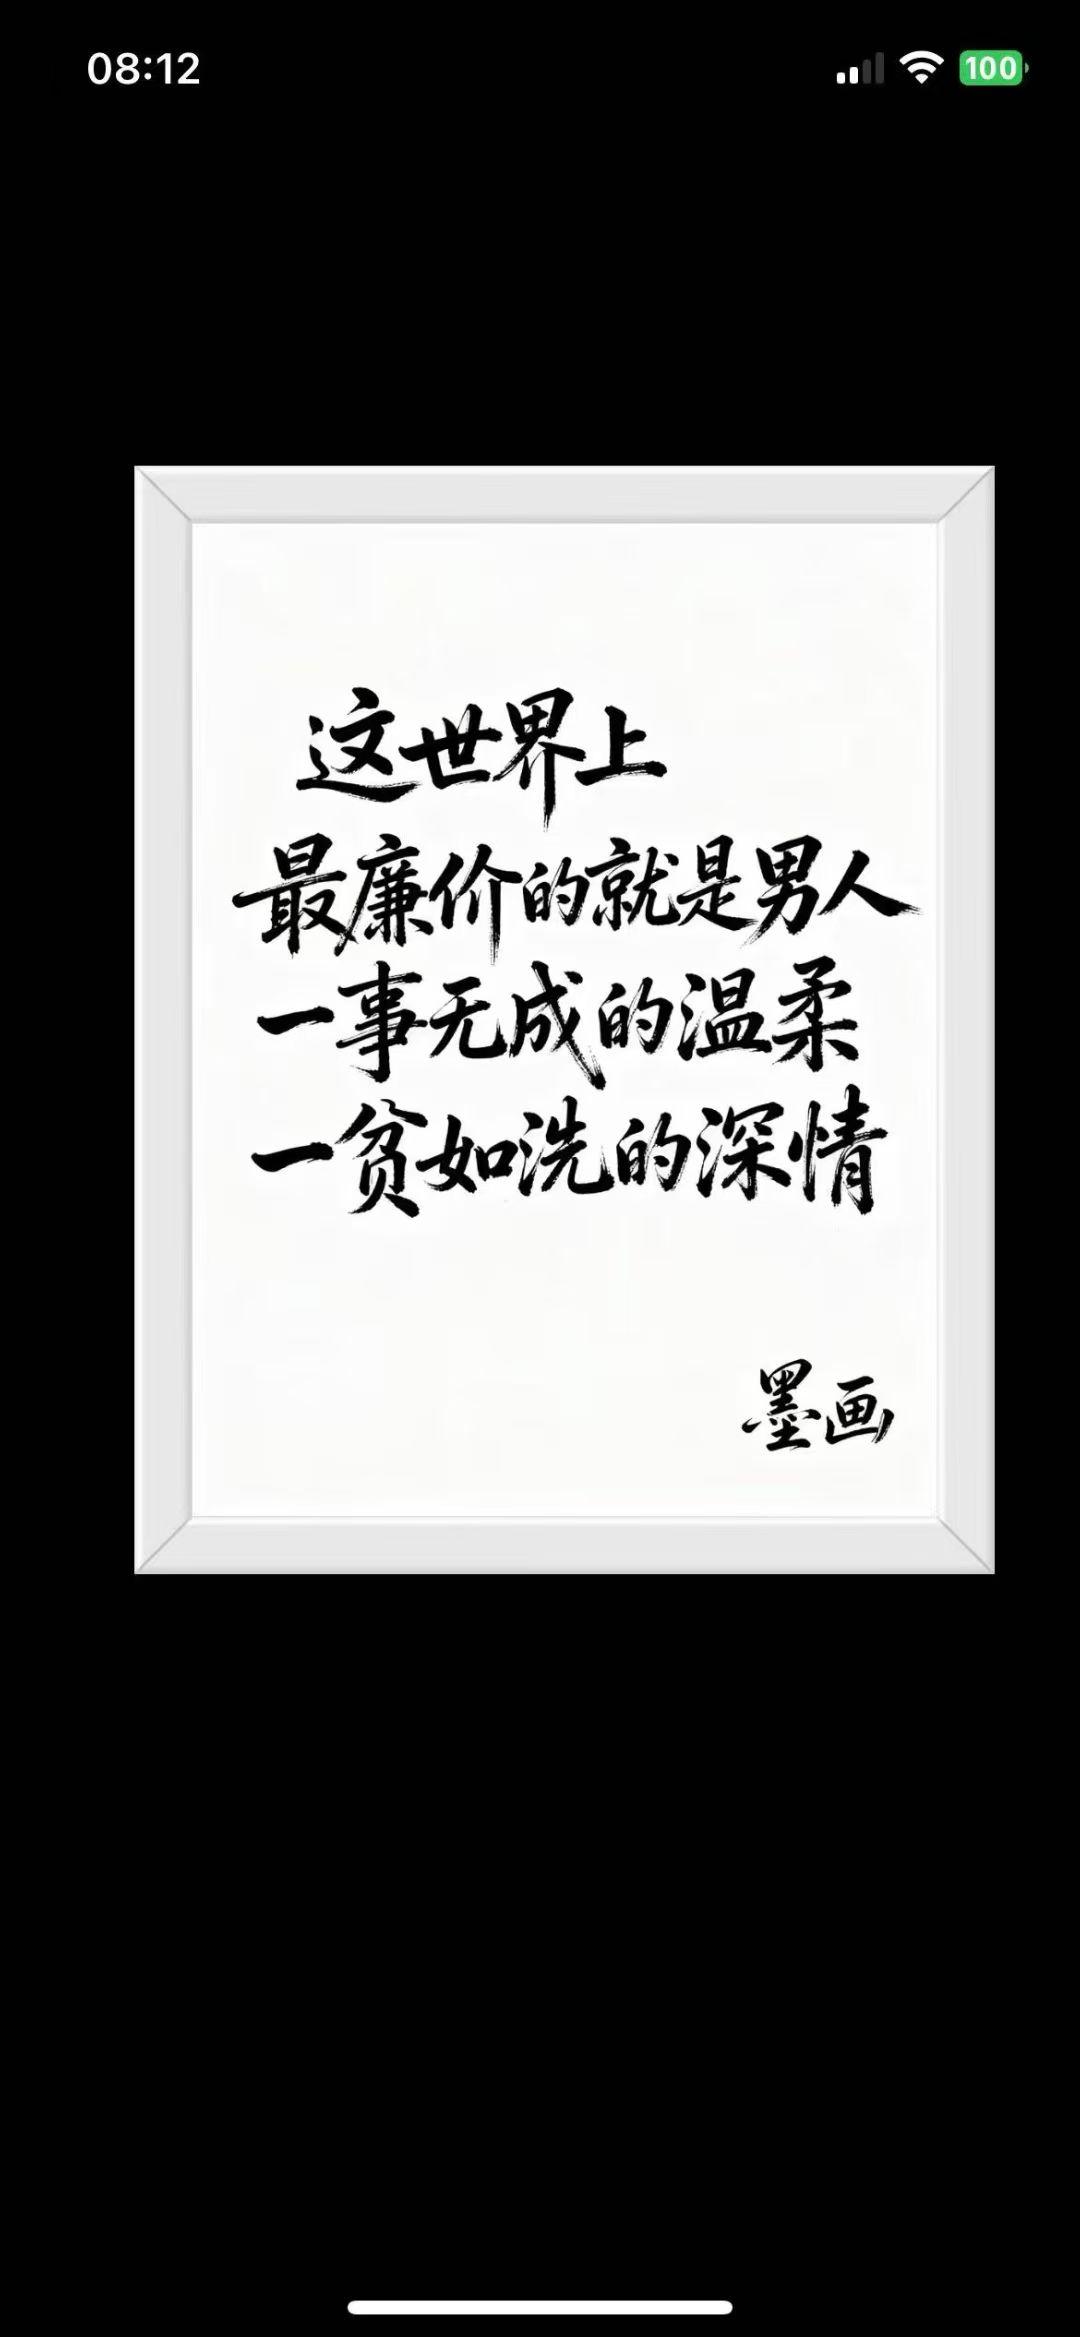 08:12
100
这世界上
最廉价的就是男人
一事无成的温柔
一贫如洗的深情
墨画